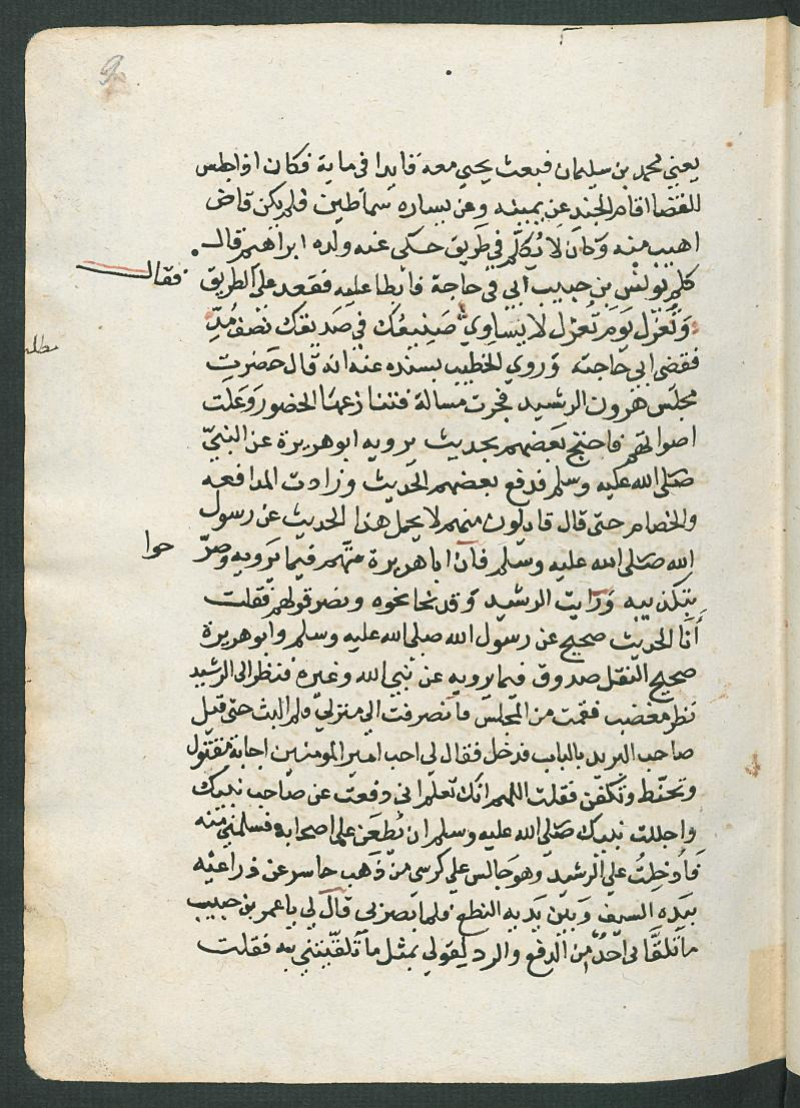 يعني محمد بن سليمان فبعث يحيى معه قايدا في ماية فكان اذا جلس
للقضا اقام الجند عن يمينه وعن يساره سماطين فلم يكن قاض
اهيب منه وكان لا يُكلّم في طريق حكى عنه ولده ابراهيم قال
كلم يونس بن حبيب ابي في حاجة فابطا عليه فقعد على الطريق فقال
وَتُعْزَل يَومَ تُعزل لا يساوي صَنِيعُك في صديقك نصف مُدّ
فقضى ابي حاجته وروي الخطيب بسنده عنه انه قال حضرت
مجلس هرون الرشيد فجرت مسالة فتنازعها الحضور وعلت
اصواتهم فاحتج بعضهم بحديث يرويه ابو هريرة عن النبيّ
صلى الله عليه وسلم فدفع بعضهم الحديث وزادت المدافعه
والخصام حتى قال قايلون منهم لا يحل هذا الحديث عن رسول
الله صلى الله عليه وسلم فان ابا هريرة متّهم فيما يرويه وصرّحوا
بتكذيبه ورايت الرشيد قد نحا نحوه ونصر قولهم فقلت
أنا الحديث صحيح عن رسول الله صلى الله عليه وسلم وابو هريرة
صحيح النقل صدوق فيما يرويه عن نبي الله وغيره فنظر الى الرشيد
نظر مغضب فقمت من المجلس فانصرفت الى منزلي ولم البث حتى قيل
صاحب البريد بالباب فدخل فقال لي اجب امير المومنين اجابة مقتول
وتحنّط وتكفّن فقلت اللهم انك تعلم اني دفعت عن صاحب نبيك
واجللت نبيك صلى الله عليه وسلم ان يُطعن على اصحابه فسلمني منه
فأُدخلتُ على الرشيد وهو جالس على كرسي من ذهب حاسر عن ذراعيه
بيده السيف وبين يديه النطع فلما بصر بي قال لي يا عمر بن حبيب
ما تلقّاني احدٌ من الدفع والرد لقولي بمثل ما تلقيتني به فقلت